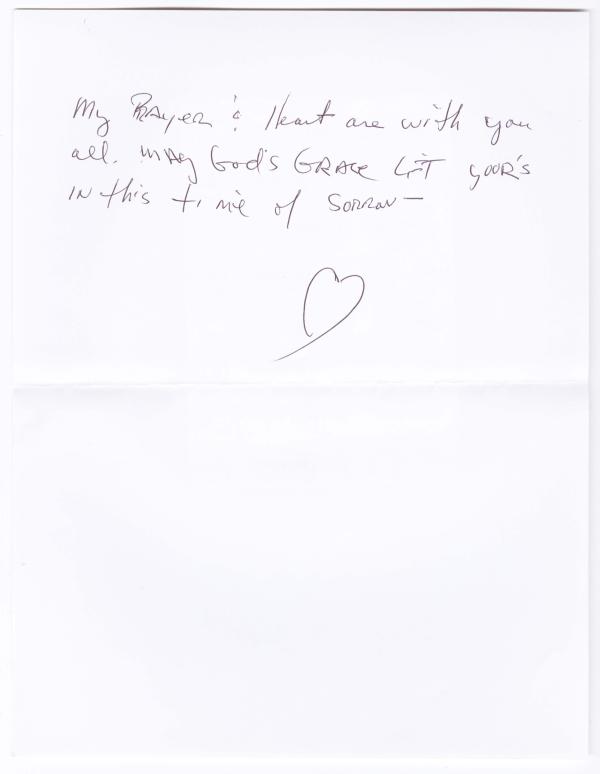 My Prayer & Heart are with you
all. May God's GRACE Lift your's
IN this time of Sorrow —